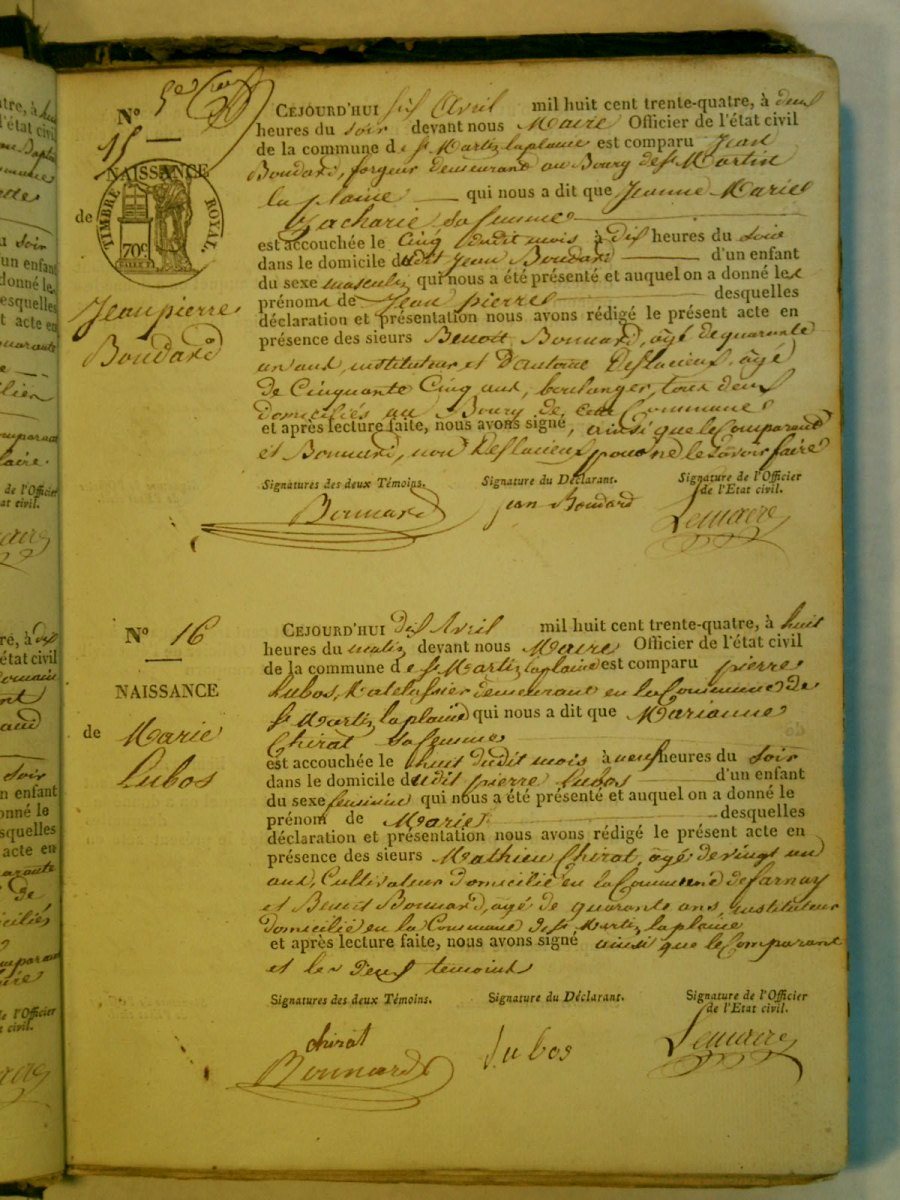 Nº
15
NAISSANCE
de
TIMBRE ROYAL.
70c
Jean pierre
Boudard
CEJOURD'HUI six Avril mil huit cent trente-quatre, à deux
heures du soir devant nous Maire Officier de l'état civil
de la commune de St Martin la plaine est comparu Jean
Boudard, forgeur demeurant au Bourg de St Martin
la plaine qui nous a dit que Jeanne Marie
Zacharie sa femme
est accouchée le Cinq dudit mois à dix heures du soir
dans le domicile dudit Jean Boudard d'un enfant
du sexe masculin qui nous a été présenté et auquel on a donné les
prénoms de Jean pierre desquelles
déclaration et présentation nous avons rédigé le présent acte en
présence des sieurs Benoit Bonnard, âgé de quarante
un ans, instituteur et D'antoine Deflacieux, âgé
de Cinquante Cinq ans, boulanger, tous deux
domiciliés au Bourg de cette Commune
et après lecture faite, nous avons signé, ainsi que le Comparant
et Bonnard, non Deflacieux pour ne le savoir faire
Signatures des deux Témoins. Signature du Déclarant. Signature de l'Officier
de l'Etat civil.
Bonnard jean Boudard Lemaire
Nº 16
NAISSANCE
de Marie
Lubos
CEJOURD'HUI dix Avril mil huit cent trente-quatre, à huit
heures du matin devant nous Maire Officier de l'état civil
de la commune de St Martin la plaine est comparu pierre
Lubos, Matelassier demeurant en la Commune de
St Martin la plaine qui nous a dit que Marianne
Chirat sa femme
est accouchée le huit dudit mois à neuf heures du soir
dans le domicile dudit pierre Lubos d'un enfant
du sexe feminin qui nous a été présenté et auquel on a donné le
prénom de Marie desquelles
déclaration et présentation nous avons rédigé le présent acte en
présence des sieurs Mathieu Chirat, âgé de vingt un
ans, Cultivateur domicilié en la Commune de farnay
et Benoit Bonnard, âgé de quarante ans, instituteur
domicilié en la Commune de St Martin la plaine
et après lecture faite, nous avons signé ainsi que le Comparant
et les deux temoins
Signatures des deux Témoins. Signature du Déclarant. Signature de l'Officier
de l'Etat civil.
chirat
Bonnard Lubos Lemaire